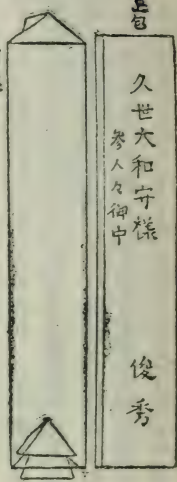 上包
久世大和守様
参人々御中
俊秀